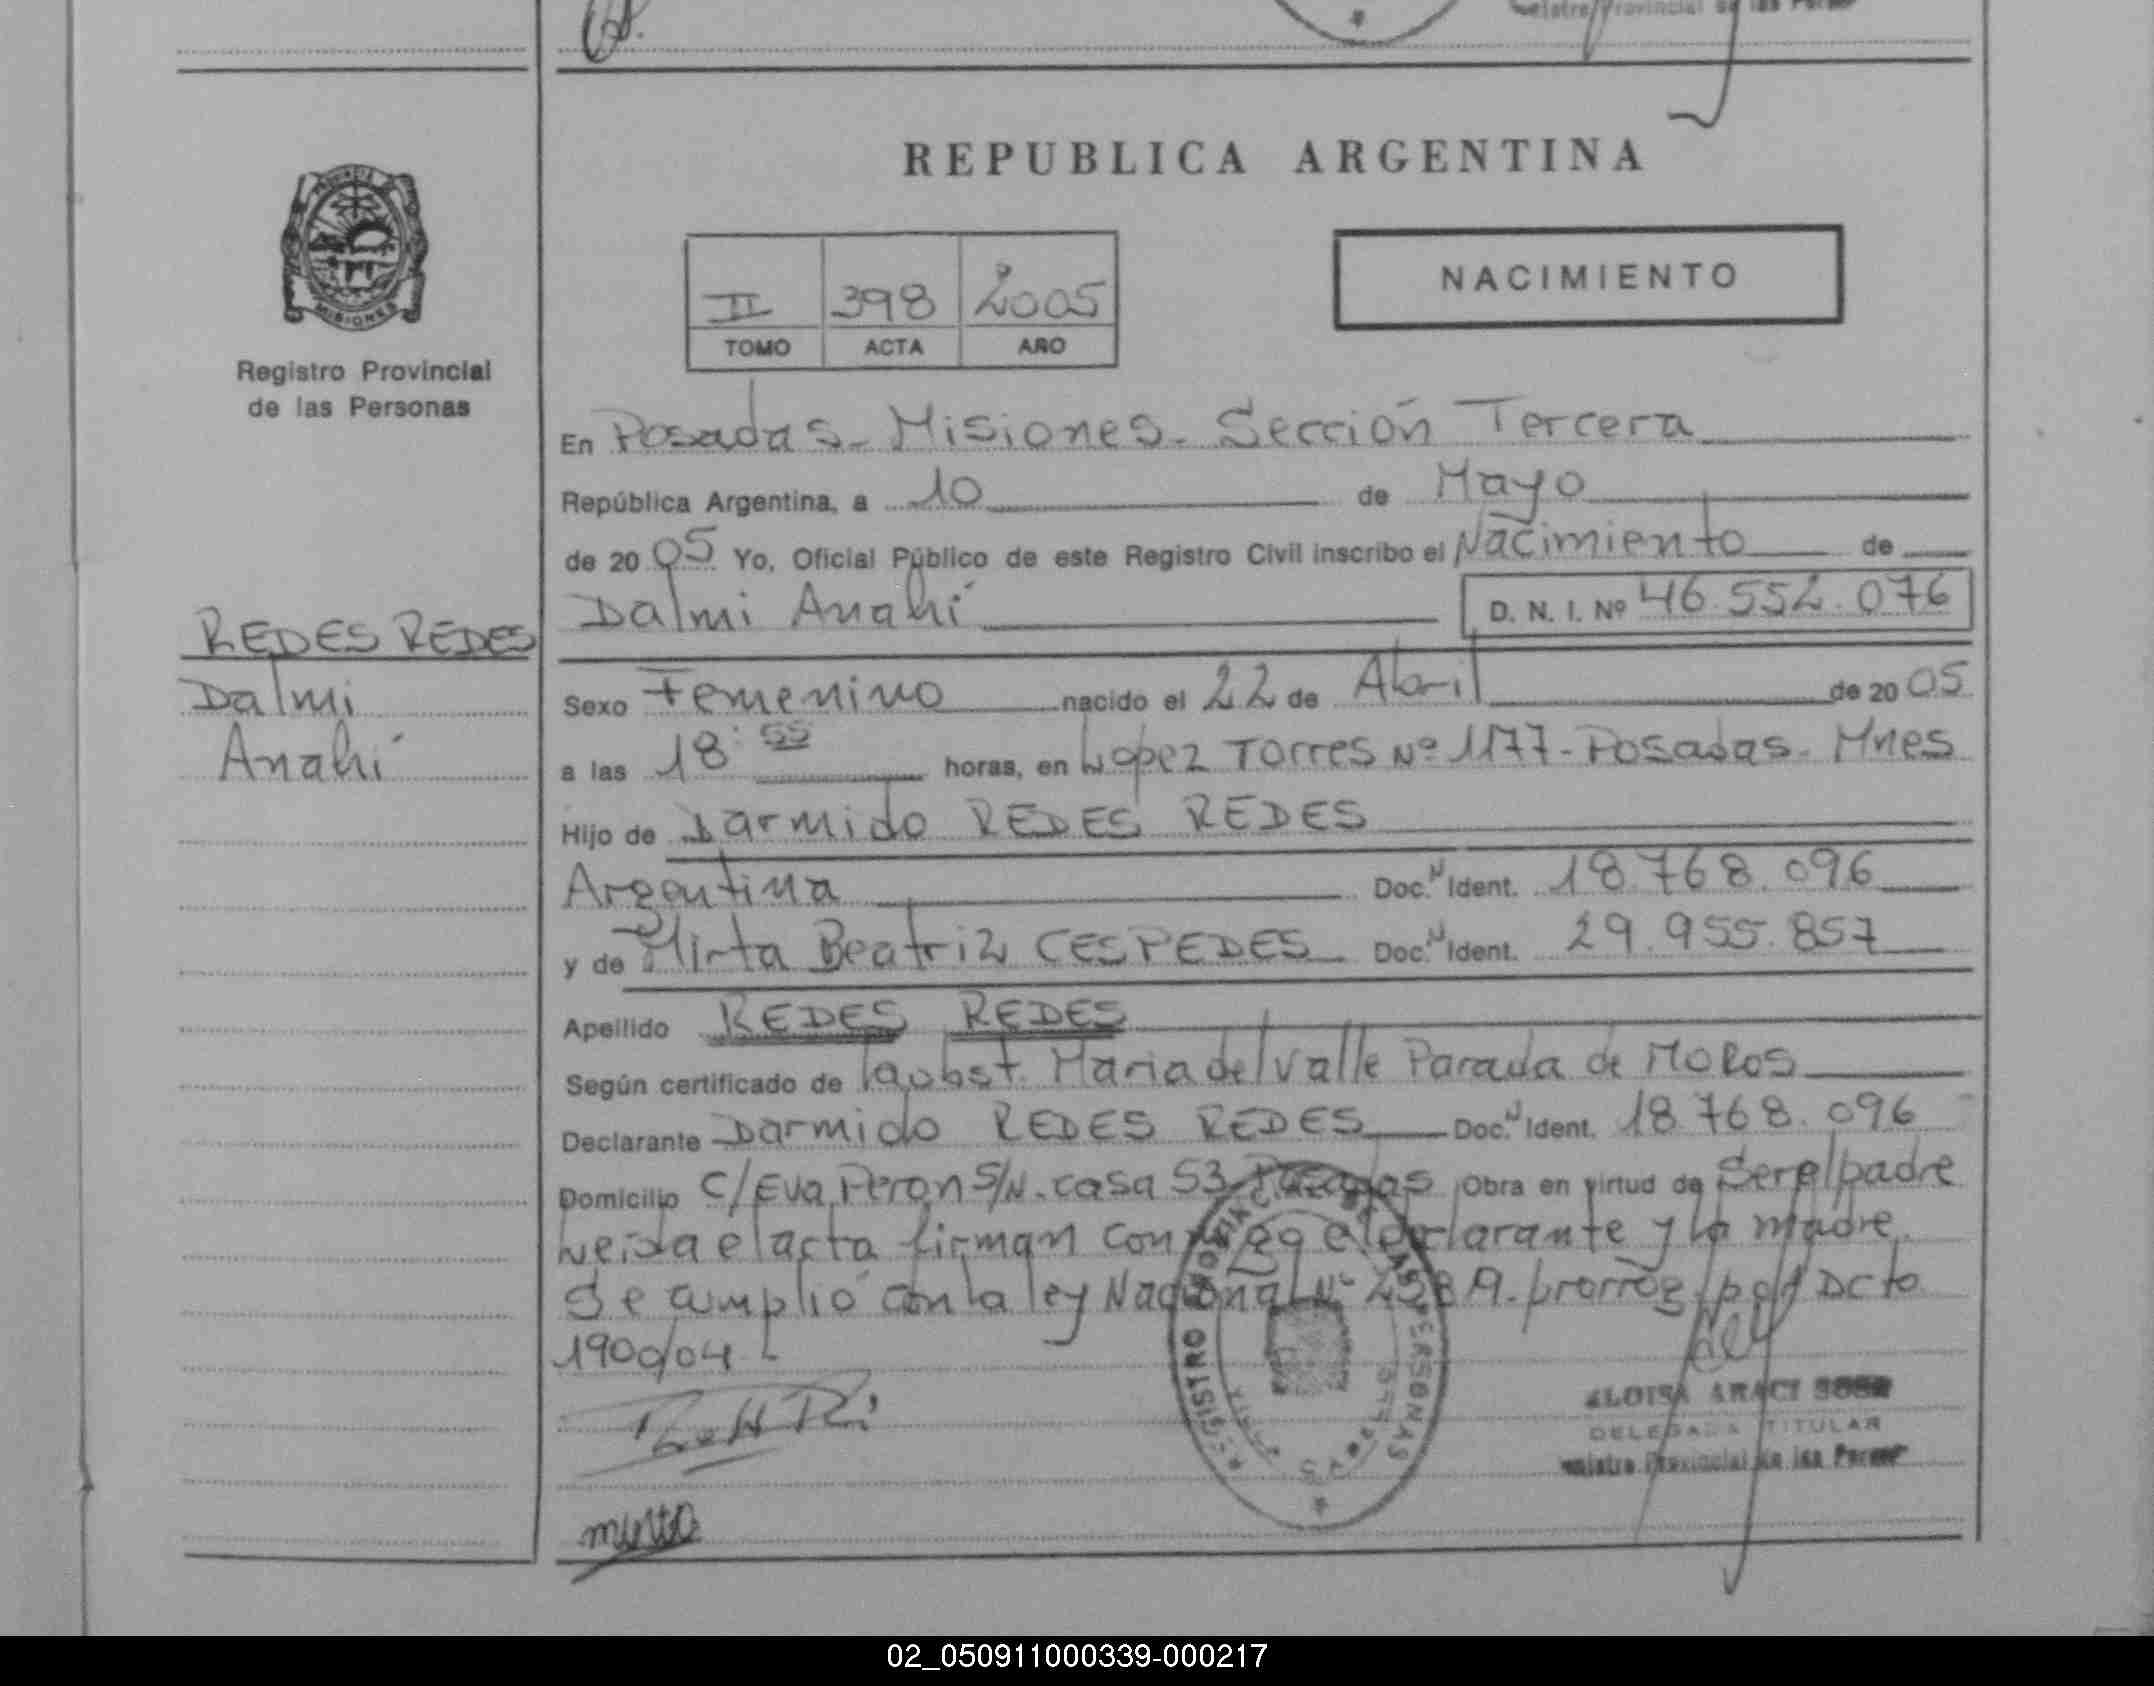 REPUBLICA ARGENTINA
PROVINCIA
MISIONES
Registro Provincial
de las Personas
II 398 2005
TOMO ACTA AÑO
NACIMIENTO
En Posadas - Misiones - Sección Tercera
República Argentina, a 10 de Mayo
de 20 05 Yo, Oficial Público de este Registro Civil inscribo el Nacimiento de
Dalmi Anahí D. N. I. Nº 46.552.076
REDES REDES
Dalmi
Anahí
Sexo Femenino nacido el 22 de Abril de 20 05
a las 18:55 horas, en López Torres Nº 1177 - Posadas - Mnes
Hijo de Darmido REDES REDES
Argentina Doc. N Ident. 18.768.096
y de Mirta Beatriz CESPEDES Doc. N Ident. 29.955.857
Apellido REDES REDES
Según certificado de la obst. Maria del Valle Parada de MOROS
Declarante Darmido REDES REDES Doc. N Ident. 18.768.096
Domicilio C/ Eva Peron S/N. casa 53 Posadas Obra en virtud de Ser el padre
Leida el acta firman conmigo el declarante y la madre
Se amplió con la ley Nacional Nº prorrog. por Dcto
1900/04
REGISTRO PROVINCIAL DE LAS PERSONAS
DELEGADA TITULAR
Registro Provincial de las Person
Mirta
02_050911000339-000217